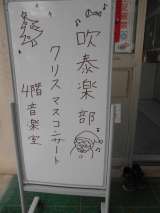 吹奏楽部
クリスマスコンサート
4階音楽室